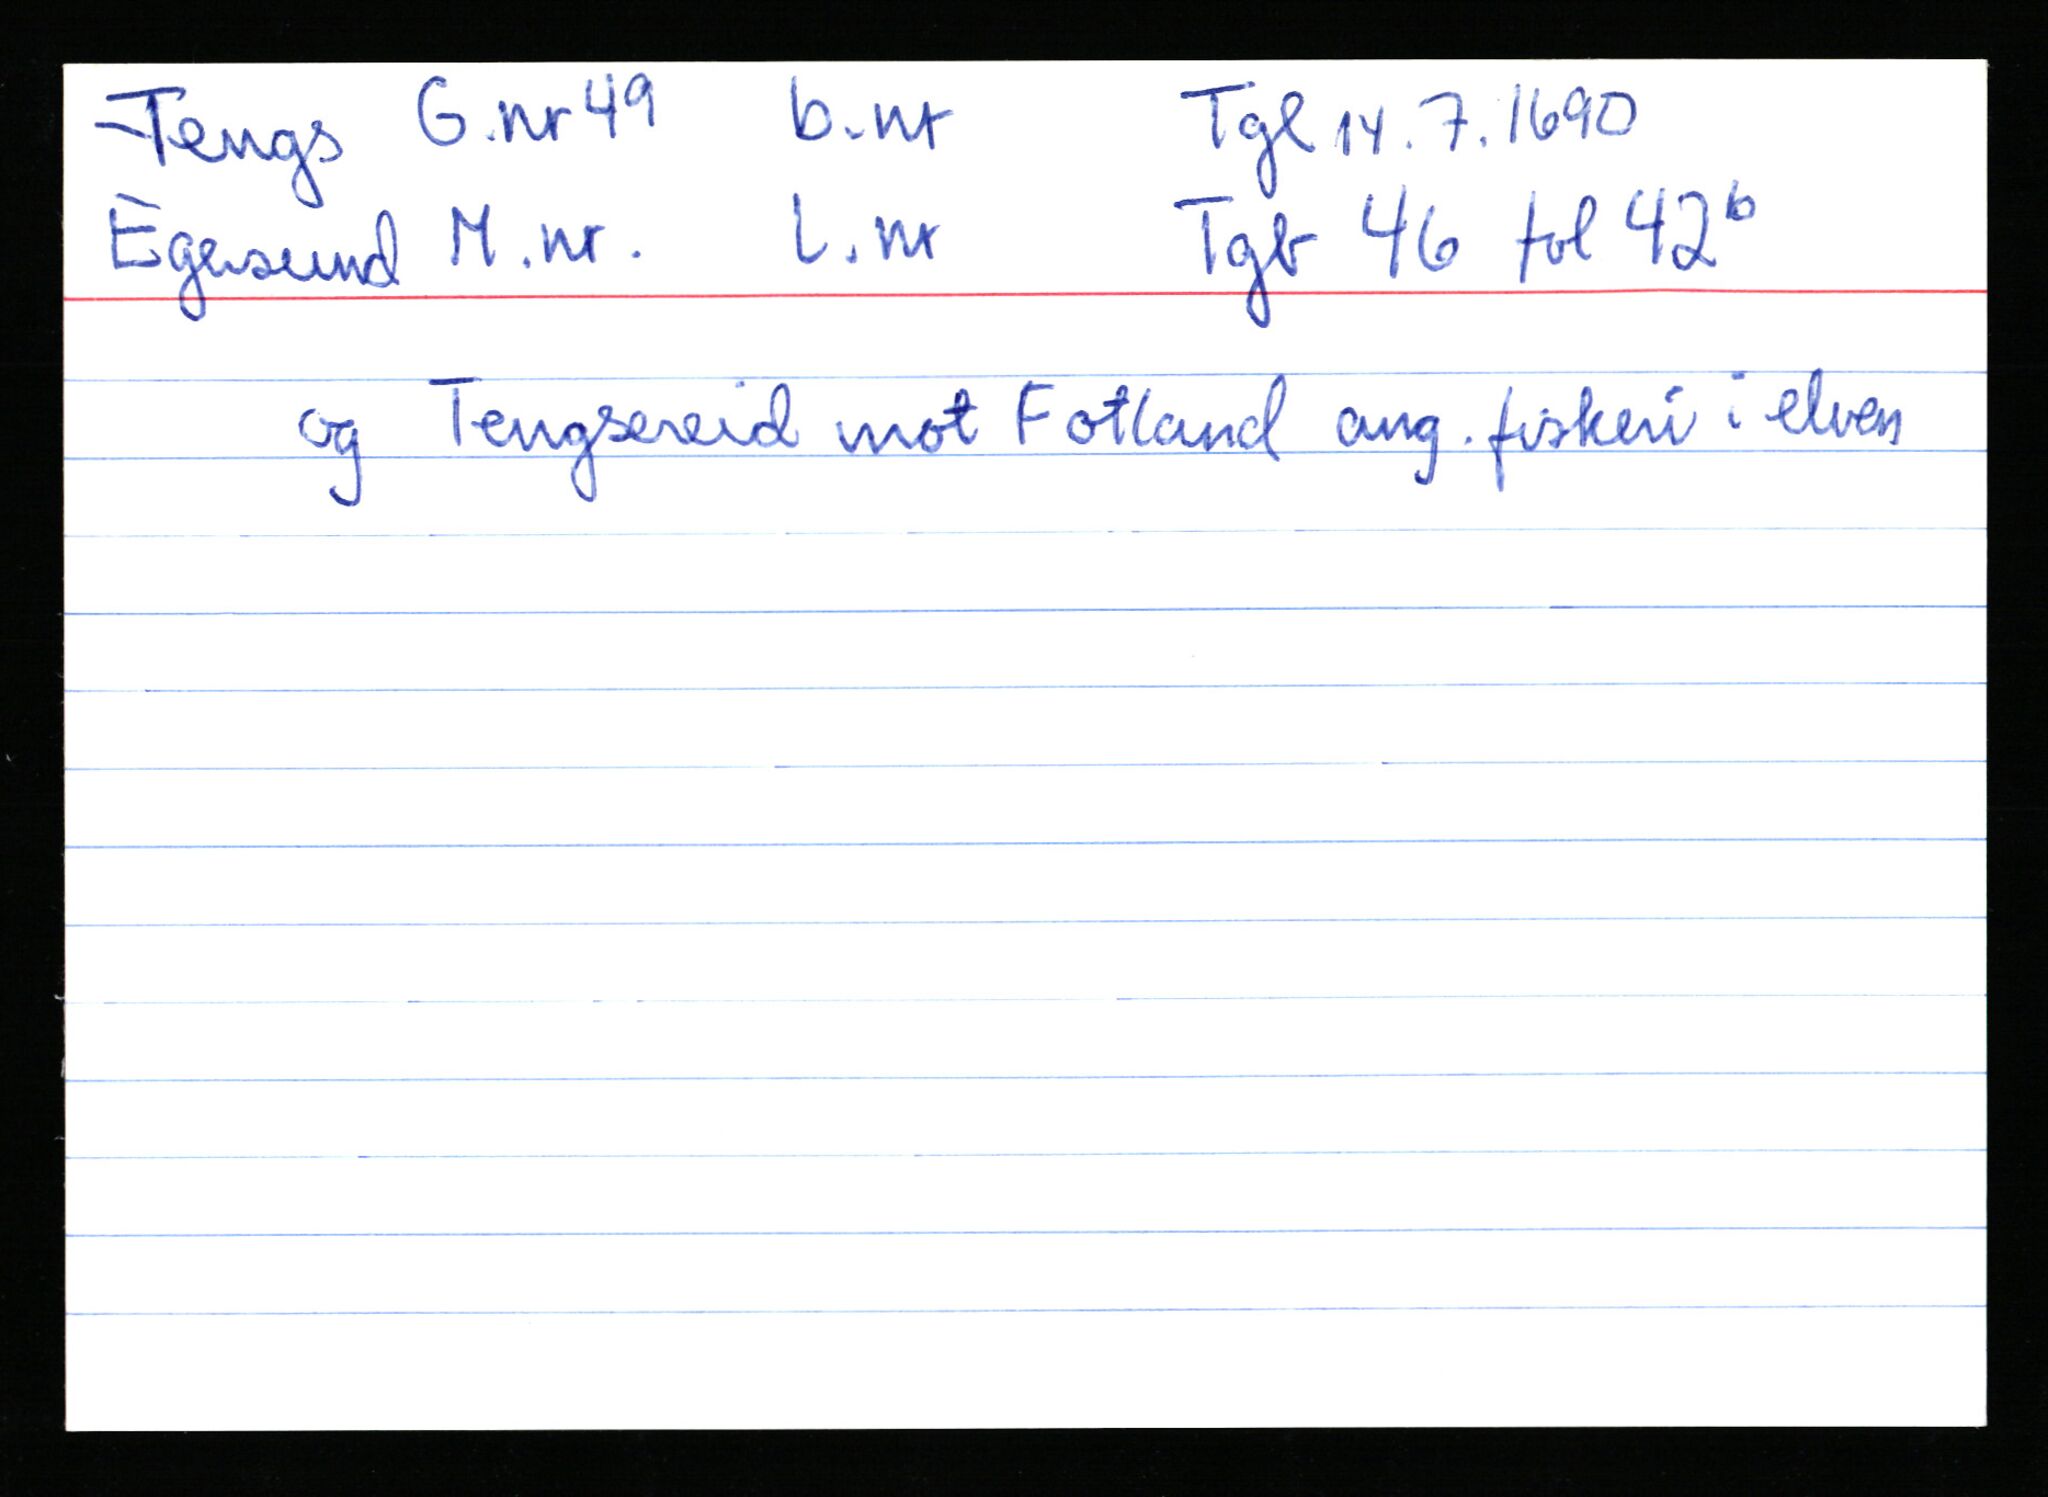 Tengs G.nr 49 b.nr Tgl 14.7.1690
Egersund M.nr. L.nr Tgb 46 fol 42b
og Tengsereid mot Fotland ang. fiskeri i elven